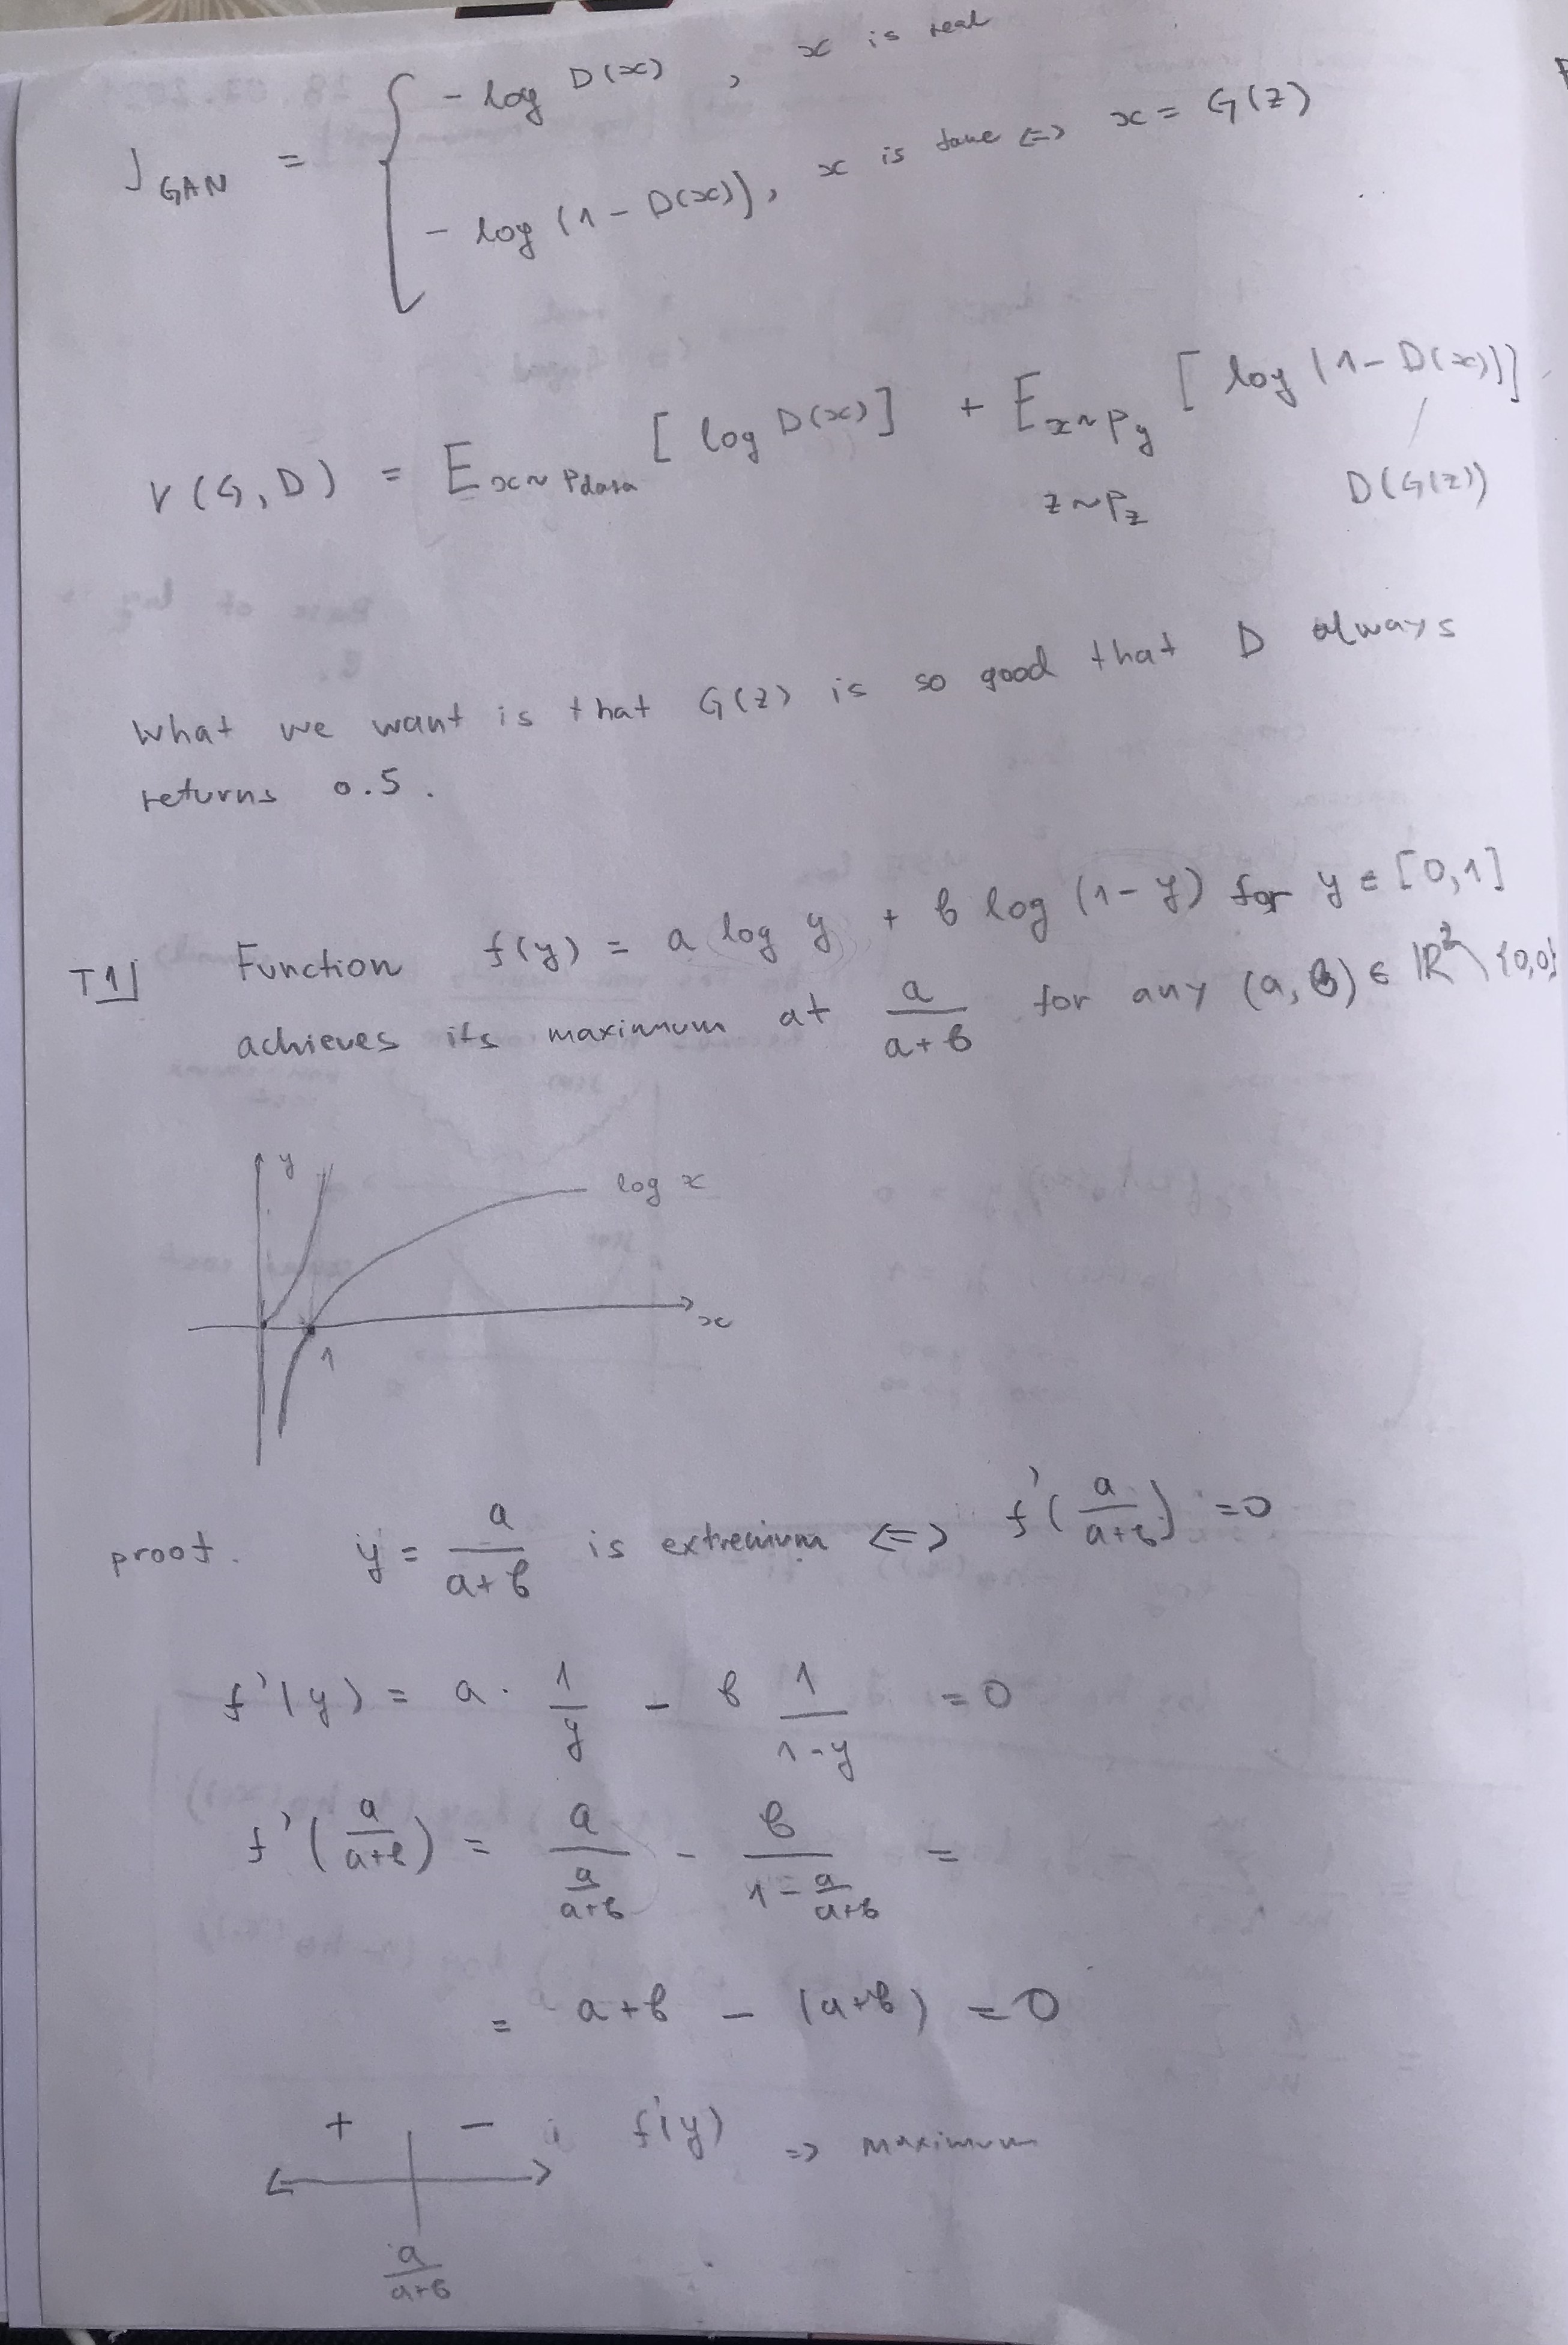 J_GAN = { - log D(x) , x is real
- log (1 - D(x)), x is fake <=> x = G(z)
V(G,D) = E_{x~Pdata} [ log D(x) ] + E_{x~Pg} [ log (1 - D(x)) ]
z~Pz D(G(z))
What we want is that G(z) is so good that D always
returns 0.5.
T1 Function f(y) = a log y + b log (1-y) for y ∈ [0,1]
achieves its maximum at a/(a+b) for any (a,b) ∈ ℝ² \ {0,0}
y
log x
x
1
proof. y = a/(a+b) is extremum <=> f'(a/(a+b)) = 0
f'(y) = a · 1/y - b 1/(1-y) = 0
f'(a/(a+b)) = a/(a/(a+b)) - b/(1 - a/(a+b)) =
= a+b - (a+b) = 0
+ - f'(y) => maximum
a/(a+b)